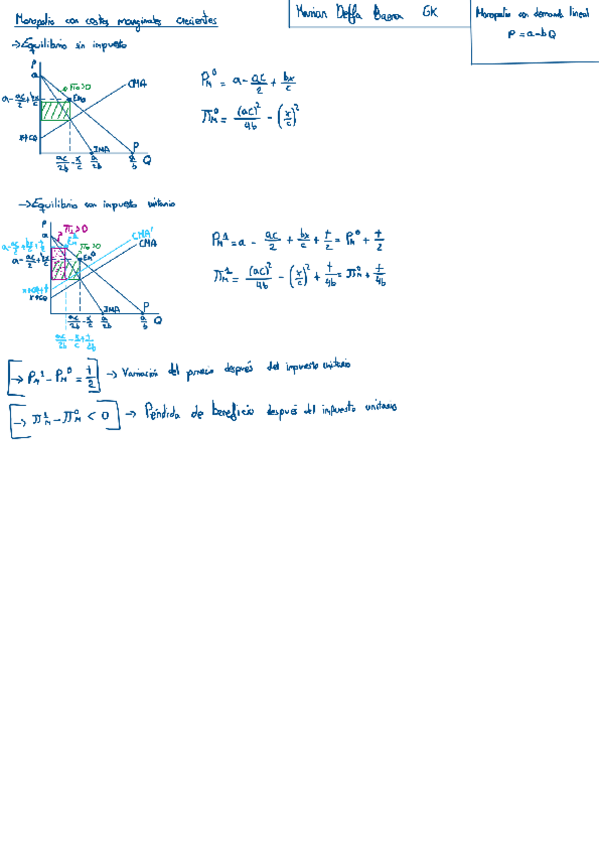 Monopolio con costes marginales crecientes
Monopolio con demanda lineal
P = a - bQ
→ Equilibrio sin impuesto
P
a
π₀ > 0
Em₀
CMA
a - ac/2 + bx/c
x + cQ
ac/2b - x/c
IMA
a/2b
P
a/b
Q
P_M^0 = a - ac/2 + bx/c
π_M^0 = (ac)²/4b - (x/c)²
→ Equilibrio con impuesto unitario
P
a
π₁ > 0
Em¹
π₀ > 0
Em⁰
CMA'
CMA
a - ac/2 + bx/c + t/2
a - ac/2 + bx/c
x + cQ + t
x + cQ
ac/2b - x/c
IMA
a/2b
P
a/b
Q
P_M^1 = a - ac/2 + bx/c + t/2 = P_M^0 + t/2
π_M^1 = (ac)²/4b - (x/c)² + t/4b = π_M^0 + t/4b
[→ P_M^1 - P_M^0 = t/2] → Variación del precio después del impuesto unitario
[→ π_M^1 - π_M^0 < 0] → Pérdida de beneficio después del impuesto unitario